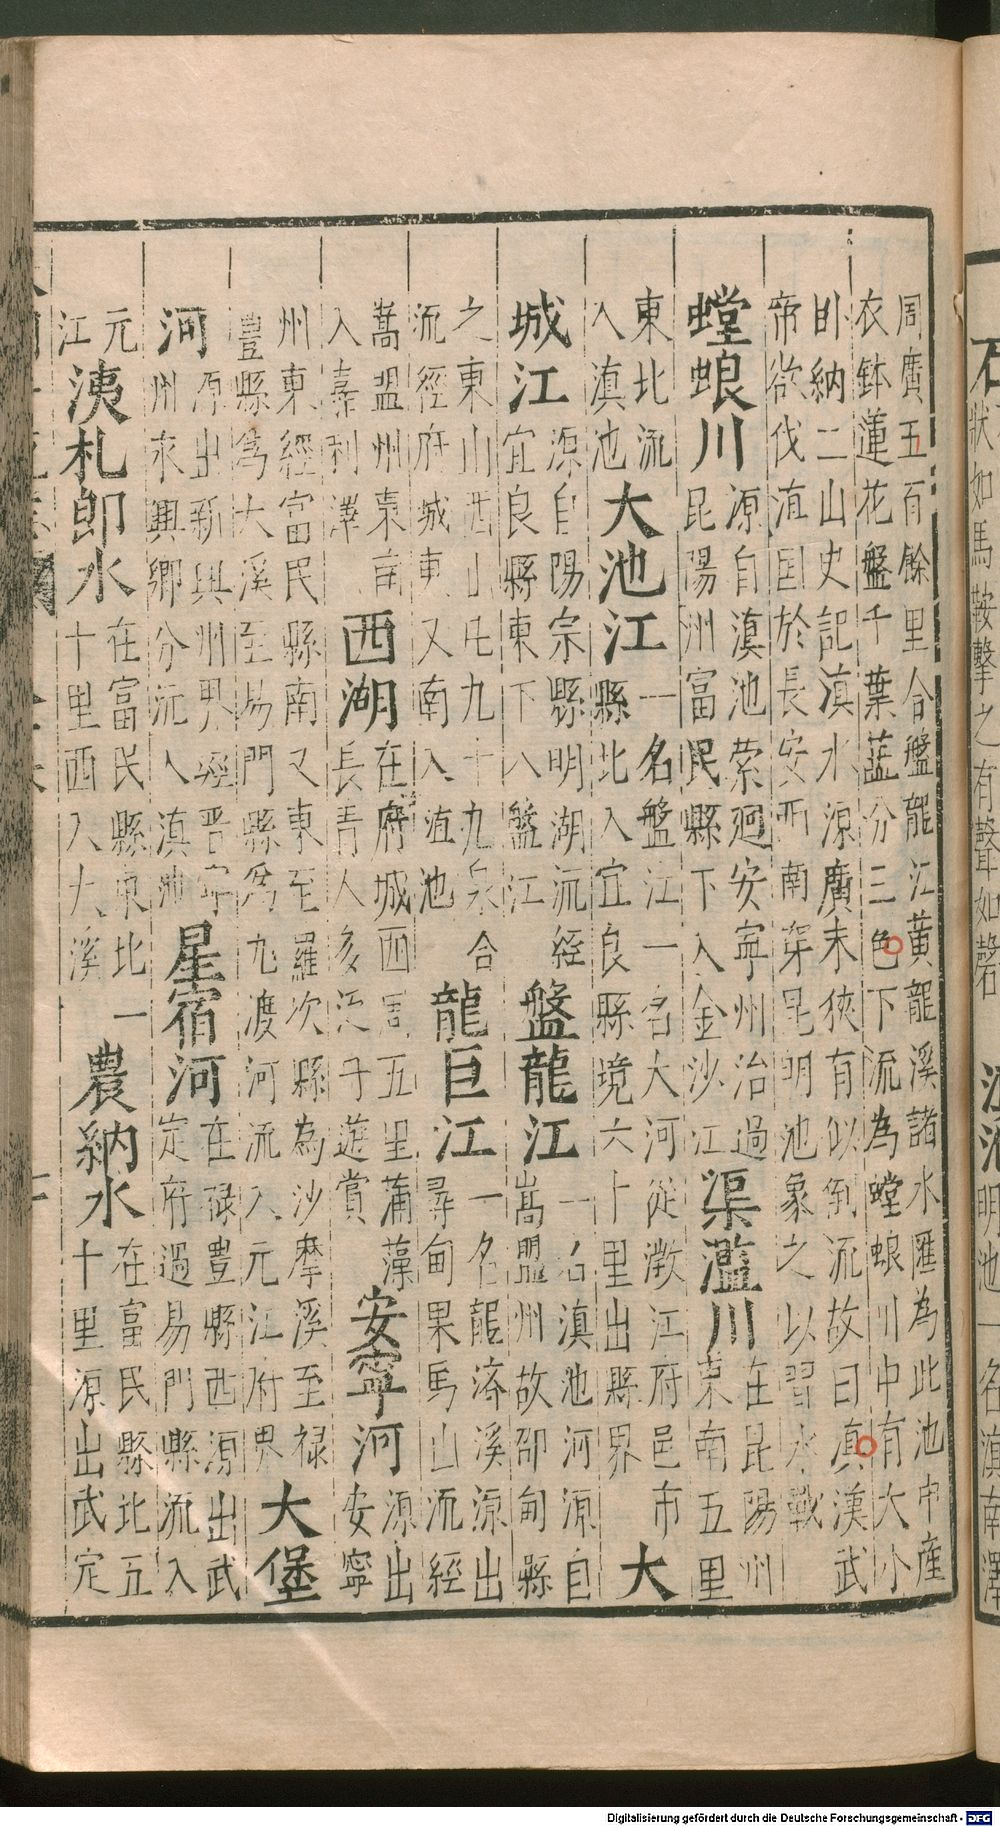 周廣五百餘里合盤龍江黃龍溪諸水匯為此池中産
衣鉢蓮花盤千葉蕋分三色下流為螳蜋川中有大小
卧納二山史記滇水源廣末狹有似倒流故曰滇漢武
帝欲伐滇国於長安西南穿昆明池象之以習水戰
螳蜋川
源自滇池縈廻安寧州治過
昆陽州富民縣下入金沙江
渠濫川
在昆陽州
東南五里
大
東北流
入滇池
大池江
一名盤江一名大河従澂江府邑市
縣北入宜良縣境六十里出縣界
城江
源自陽宗縣明湖流经
宜良縣東下入盤江
盤龍江
一名滇池河源自
嵩盟州故邵甸縣
之東山西山凡九十九泉合
流徑府城東又南入滇池
龍巨江
一名龍濟溪源出
尋甸果馬山流經
嵩盟州東南
入嘉利澤
西湖
在府城西周五里蒲藻
長青人多泛子遊賞
安寧河
源出
安寧
州東經富民縣南又東至羅次縣為沙摩溪至禄
豐縣為大溪至易門縣為九渡河流入元江府界
大堡
河
源出新興州界經晋寧
州永興鄉分流入滇池
星宿河
在禄豊縣西源出武
定府過易門縣流入
元
江
洟札郎水
在富民縣東北一
十里西入大溪
農納水
在富民縣北五
十里源出武定
石
狀如馬鞍擊之有聲如磬
滇池
明池一名滇南澤
Digitalisierung gefördert durch die Deutsche Forschungsgemeinschaft - DFG